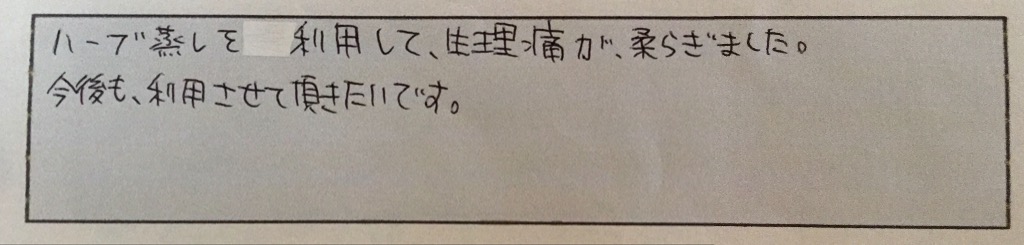 ハーブ蒸しを 利用して、生理痛が、柔らぎました。
今後も、利用させて頂きたいです。